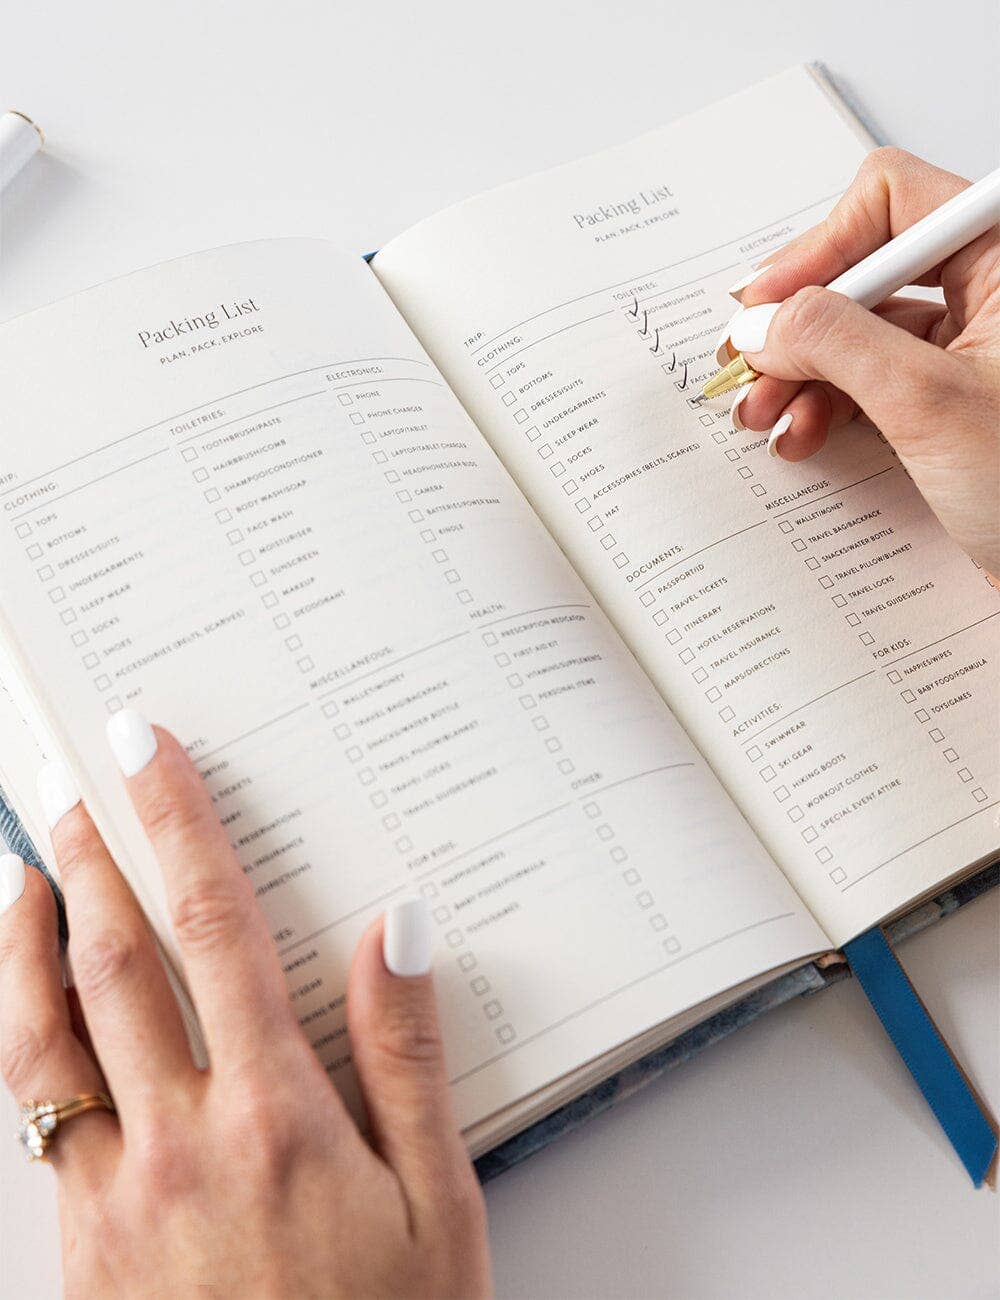 Packing List
PLAN, PACK, EXPLORE
CLOTHING:
TOPS
BOTTOMS
DRESSES/SUITS
UNDERGARMENTS
SLEEP WEAR
SOCKS
SHOES
ACCESSORIES (BELTS, SCARVES)
HAT
TOILETRIES:
TOOTHBRUSH/PASTE
HAIRBRUSH/COMB
SHAMPOO/CONDITIONER
BODY WASH/SOAP
FACE WASH
MOISTURISER
SUNSCREEN
MAKEUP
DEODORANT
MISCELLANEOUS:
WALLET/MONEY
TRAVEL BAG/BACKPACK
SNACKS/WATER BOTTLE
TRAVEL PILLOW/BLANKET
TRAVEL LOCKS
TRAVEL GUIDES/BOOKS
FOR KIDS:
NAPPIES/WIPES
BABY FOOD/FORMULA
TOYS/GAMES
ELECTRONICS:
PHONE
PHONE CHARGER
LAPTOP/TABLET
LAPTOP/TABLET CHARGER
HEADPHONES/EAR BUDS
CAMERA
BATTERIES/POWER BANK
KINDLE
HEALTH:
PRESCRIPTION MEDICATION
FIRST-AID KIT
VITAMINS/SUPPLEMENTS
PERSONAL ITEMS
OTHER:
Packing List
PLAN, PACK, EXPLORE
TRIP:
CLOTHING:
TOPS
BOTTOMS
DRESSES/SUITS
UNDERGARMENTS
SLEEP WEAR
SOCKS
SHOES
ACCESSORIES (BELTS, SCARVES)
HAT
DOCUMENTS:
PASSPORT/ID
TRAVEL TICKETS
ITINERARY
HOTEL RESERVATIONS
TRAVEL INSURANCE
MAPS/DIRECTIONS
ACTIVITIES:
SWIMWEAR
SKI GEAR
HIKING BOOTS
WORKOUT CLOTHES
SPECIAL EVENT ATTIRE
TOILETRIES:
TOOTHBRUSH/PASTE
HAIRBRUSH/COMB
BODY
FACE
MISCELLANEOUS:
WALLET/MONEY
TRAVEL BAG/BACKPACK
SNACKS/WATER BOTTLE
TRAVEL PILLOW/BLANKET
TRAVEL LOCKS
TRAVEL GUIDES/BOOKS
FOR KIDS:
NAPPIES/WIPES
BABY FOOD/FORMULA
TOYS/GAMES
ELECTRONICS: